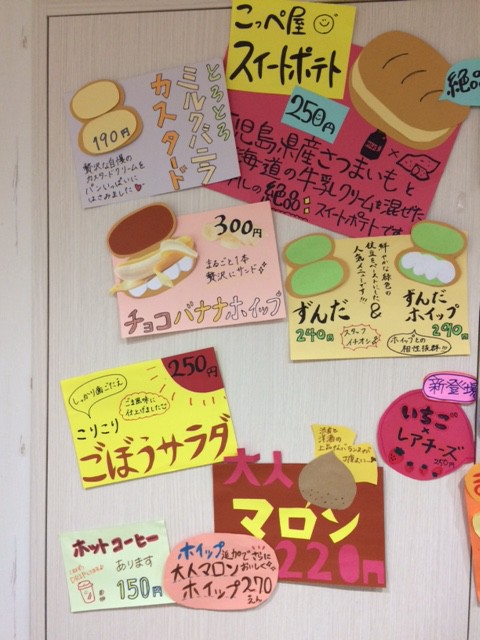 こっぺ屋
スイートポテト
250円
絶品
鹿児島県産さつまいもと
北海道の牛乳クリームを混ぜた
絶品スイートポテトです
とろとろ
ミルクバニラ
カスタード
190円
贅沢な自慢の
カスタードクリームを
パンいっぱいに
はさみました
300円
まるごと1本
贅沢にサンド
チョコバナナホイップ
鮮やかな緑色の
人気メニューです!!!
ずんだ
240円
&
ずんだ
ホイップ
290円
スタッフ
イチオシ
ホイップとの
相性抜群!!
250円
しっかり歯ごたえ
ごま風味に
仕上げました
こりこり
ごぼうサラダ
新登場
いちご
×
レアチーズ
250円
大人
マロン
220円
ホットコーヒー
あります
150円
ホイップ追加でさらに
おいしく
大人マロン
ホイップ270
えん